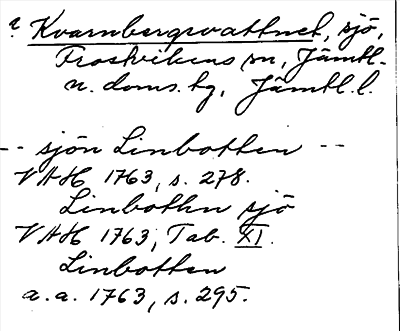 ? Kvarnbergsvattnet, sjö,
Frostvikens sn, Jämtl.
n. doms. hg, Jämtl. l.
-- sjön Linbotten --
VAH 1763, s. 278.
Linbothn sjö
VAH 1763, Tab. XI.
Linbotten
a.a. 1763, s. 295.